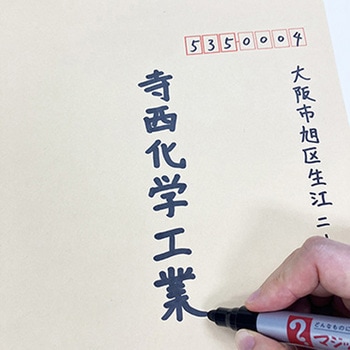 5350004
大阪市旭区生江二
寺西化学工業
どんなものに
マジッ